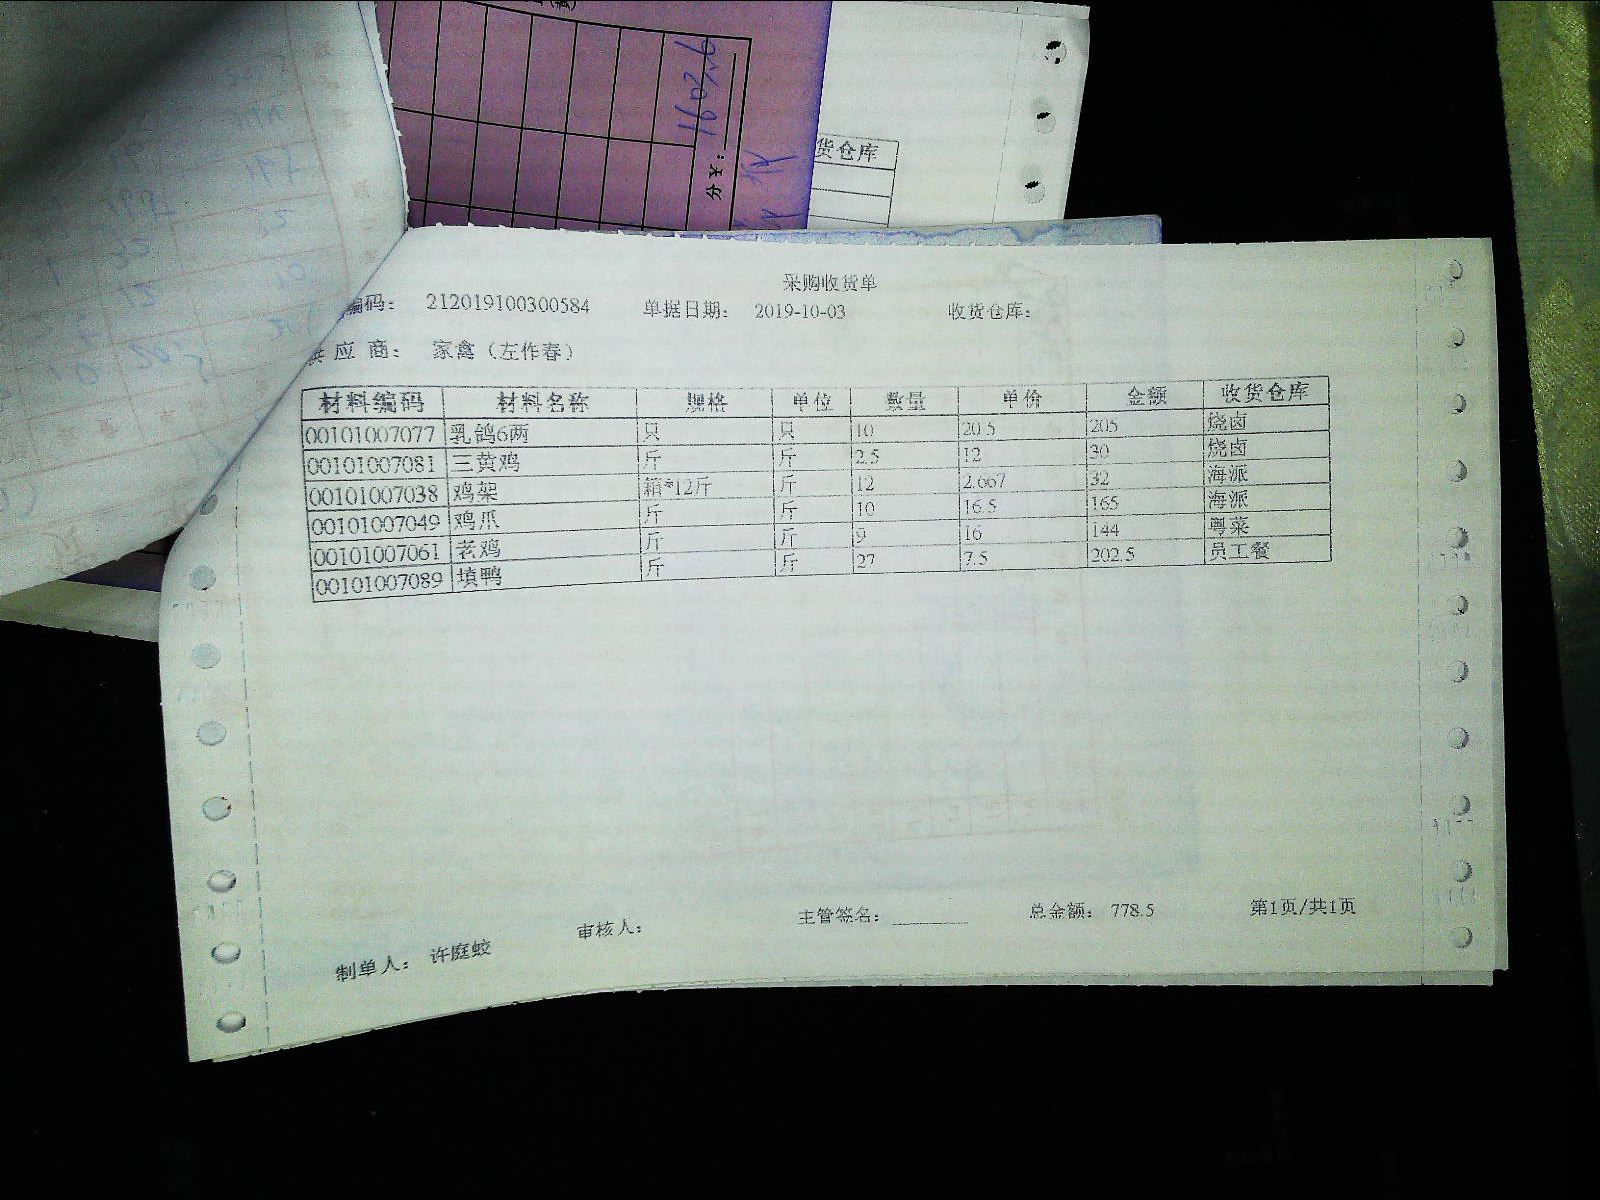 1603.6
分￥:
货仓库
采购收货单
编码: 212019100300584 单据日期: 2019-10-03 收货仓库:
供应商: 家禽(左作春)
材料编码 材料名称 规格 单位 数量 单价 金额 收货仓库
00101007077 乳鸽6两 只 只 10 20.5 205 烧卤
00101007081 三黄鸡 斤 斤 2.5 12 30 烧卤
00101007038 鸡架 箱*12斤 斤 12 2.667 32 海派
00101007049 鸡爪 斤 斤 10 16.5 165 海派
00101007061 老鸡 斤 斤 9 16 144 粤菜
00101007089 填鸭 斤 斤 27 7.5 202.5 员工餐
制单人: 许庭蛟 审核人: 主管签名: 总金额: 778.5 第1页/共1页